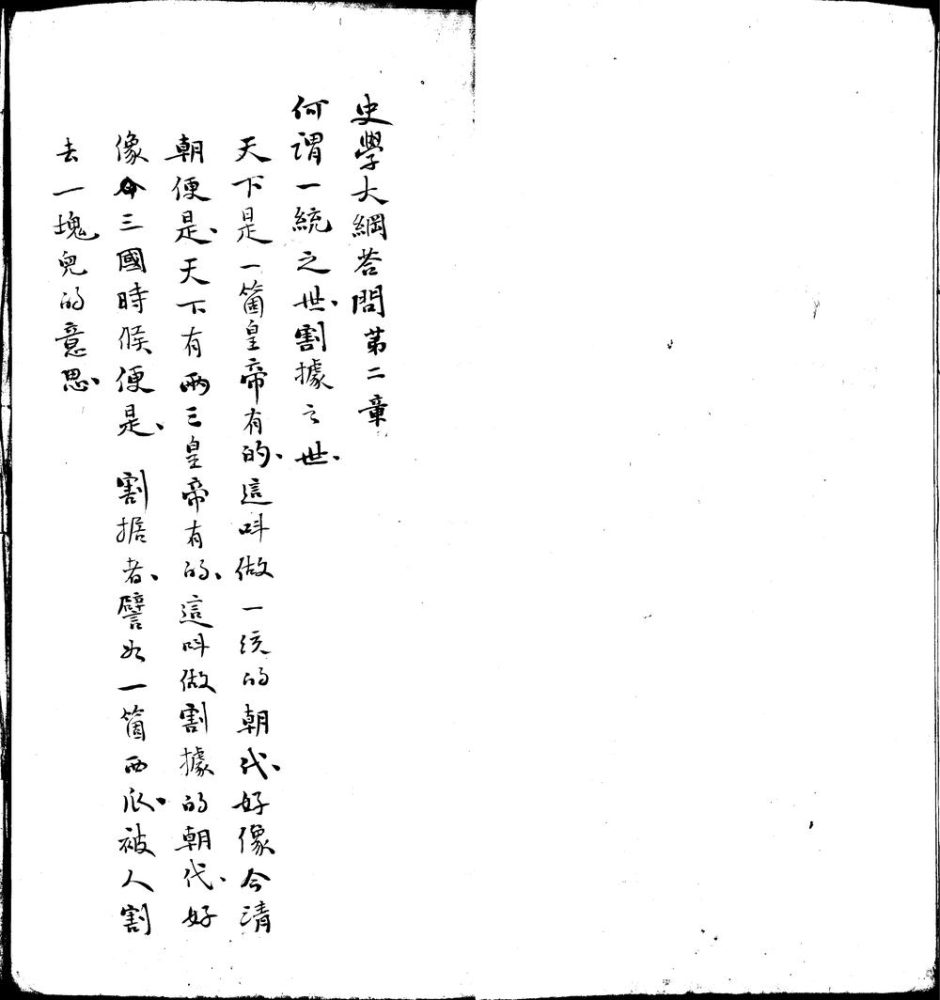 史學大綱荅問第二章
何謂一統之世、割據之世、
天下是一箇皇帝有的、這呌做一統的朝代、好像今清
朝便是、天下有兩三皇帝有的、這呌做割據的朝代、好
像三國時候便是、割据者、譬如一箇西瓜、被人割
去一塊兒的意思、